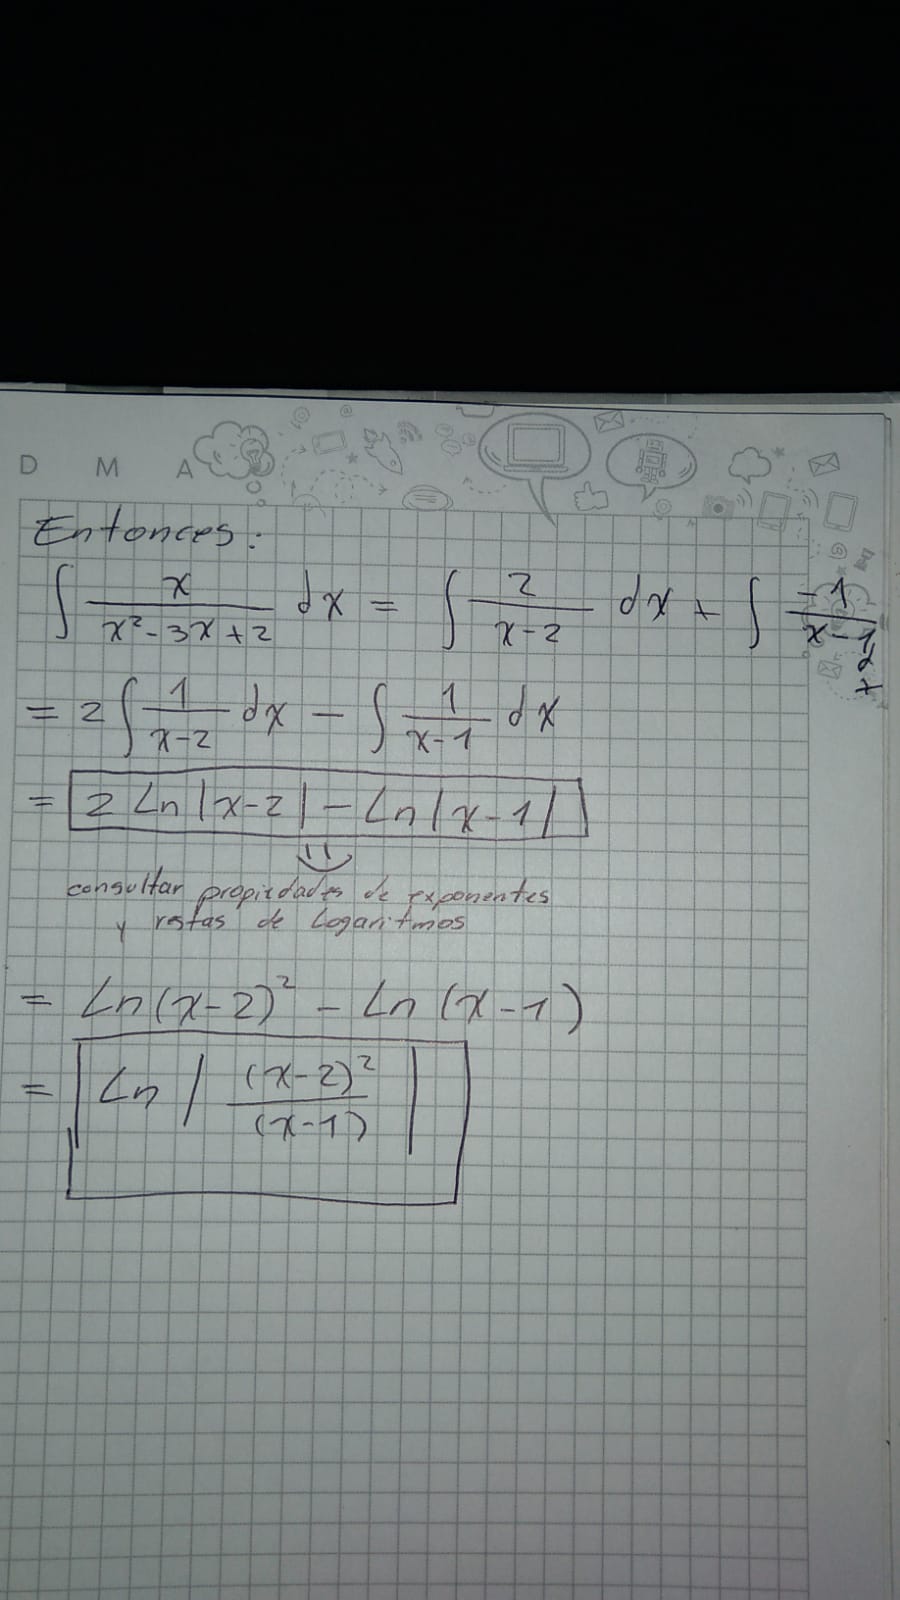 D M A
Entonces:
∫ x/(x²-3x+2) dx = ∫ 2/(x-2) dx + ∫ -1/(x-1) dx
= 2∫ 1/(x-2) dx - ∫ 1/(x-1) dx
= 2 Ln|x-2| - Ln|x-1|
consultar propiedades de exponentes
y restas de Logaritmos
= Ln(x-2)² - Ln(x-1)
= Ln | (x-2)²/(x-1) |